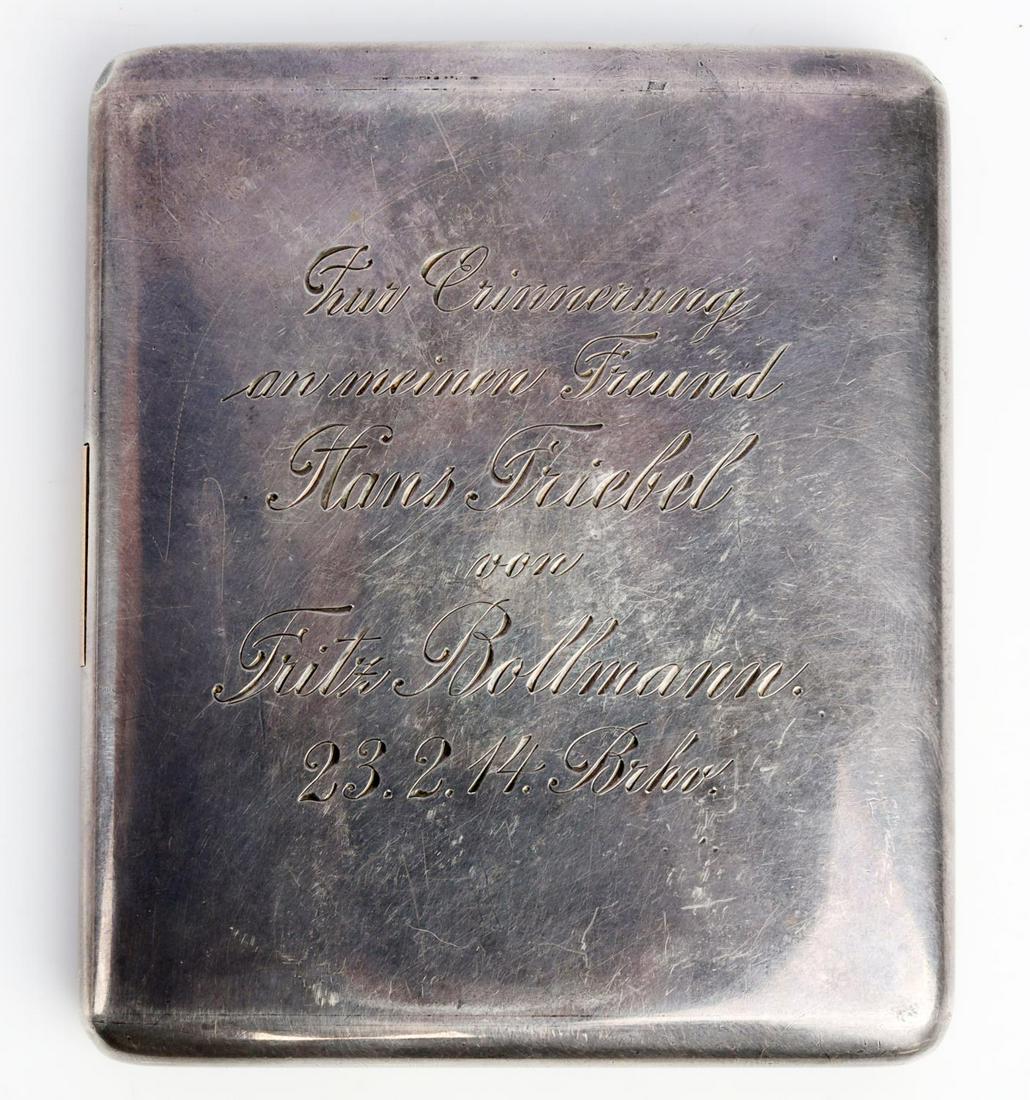 Zur Erinnerung
an meinen Freund
Hans Friebel
von
Fritz Bollmann.
23.2.14. Brhv.